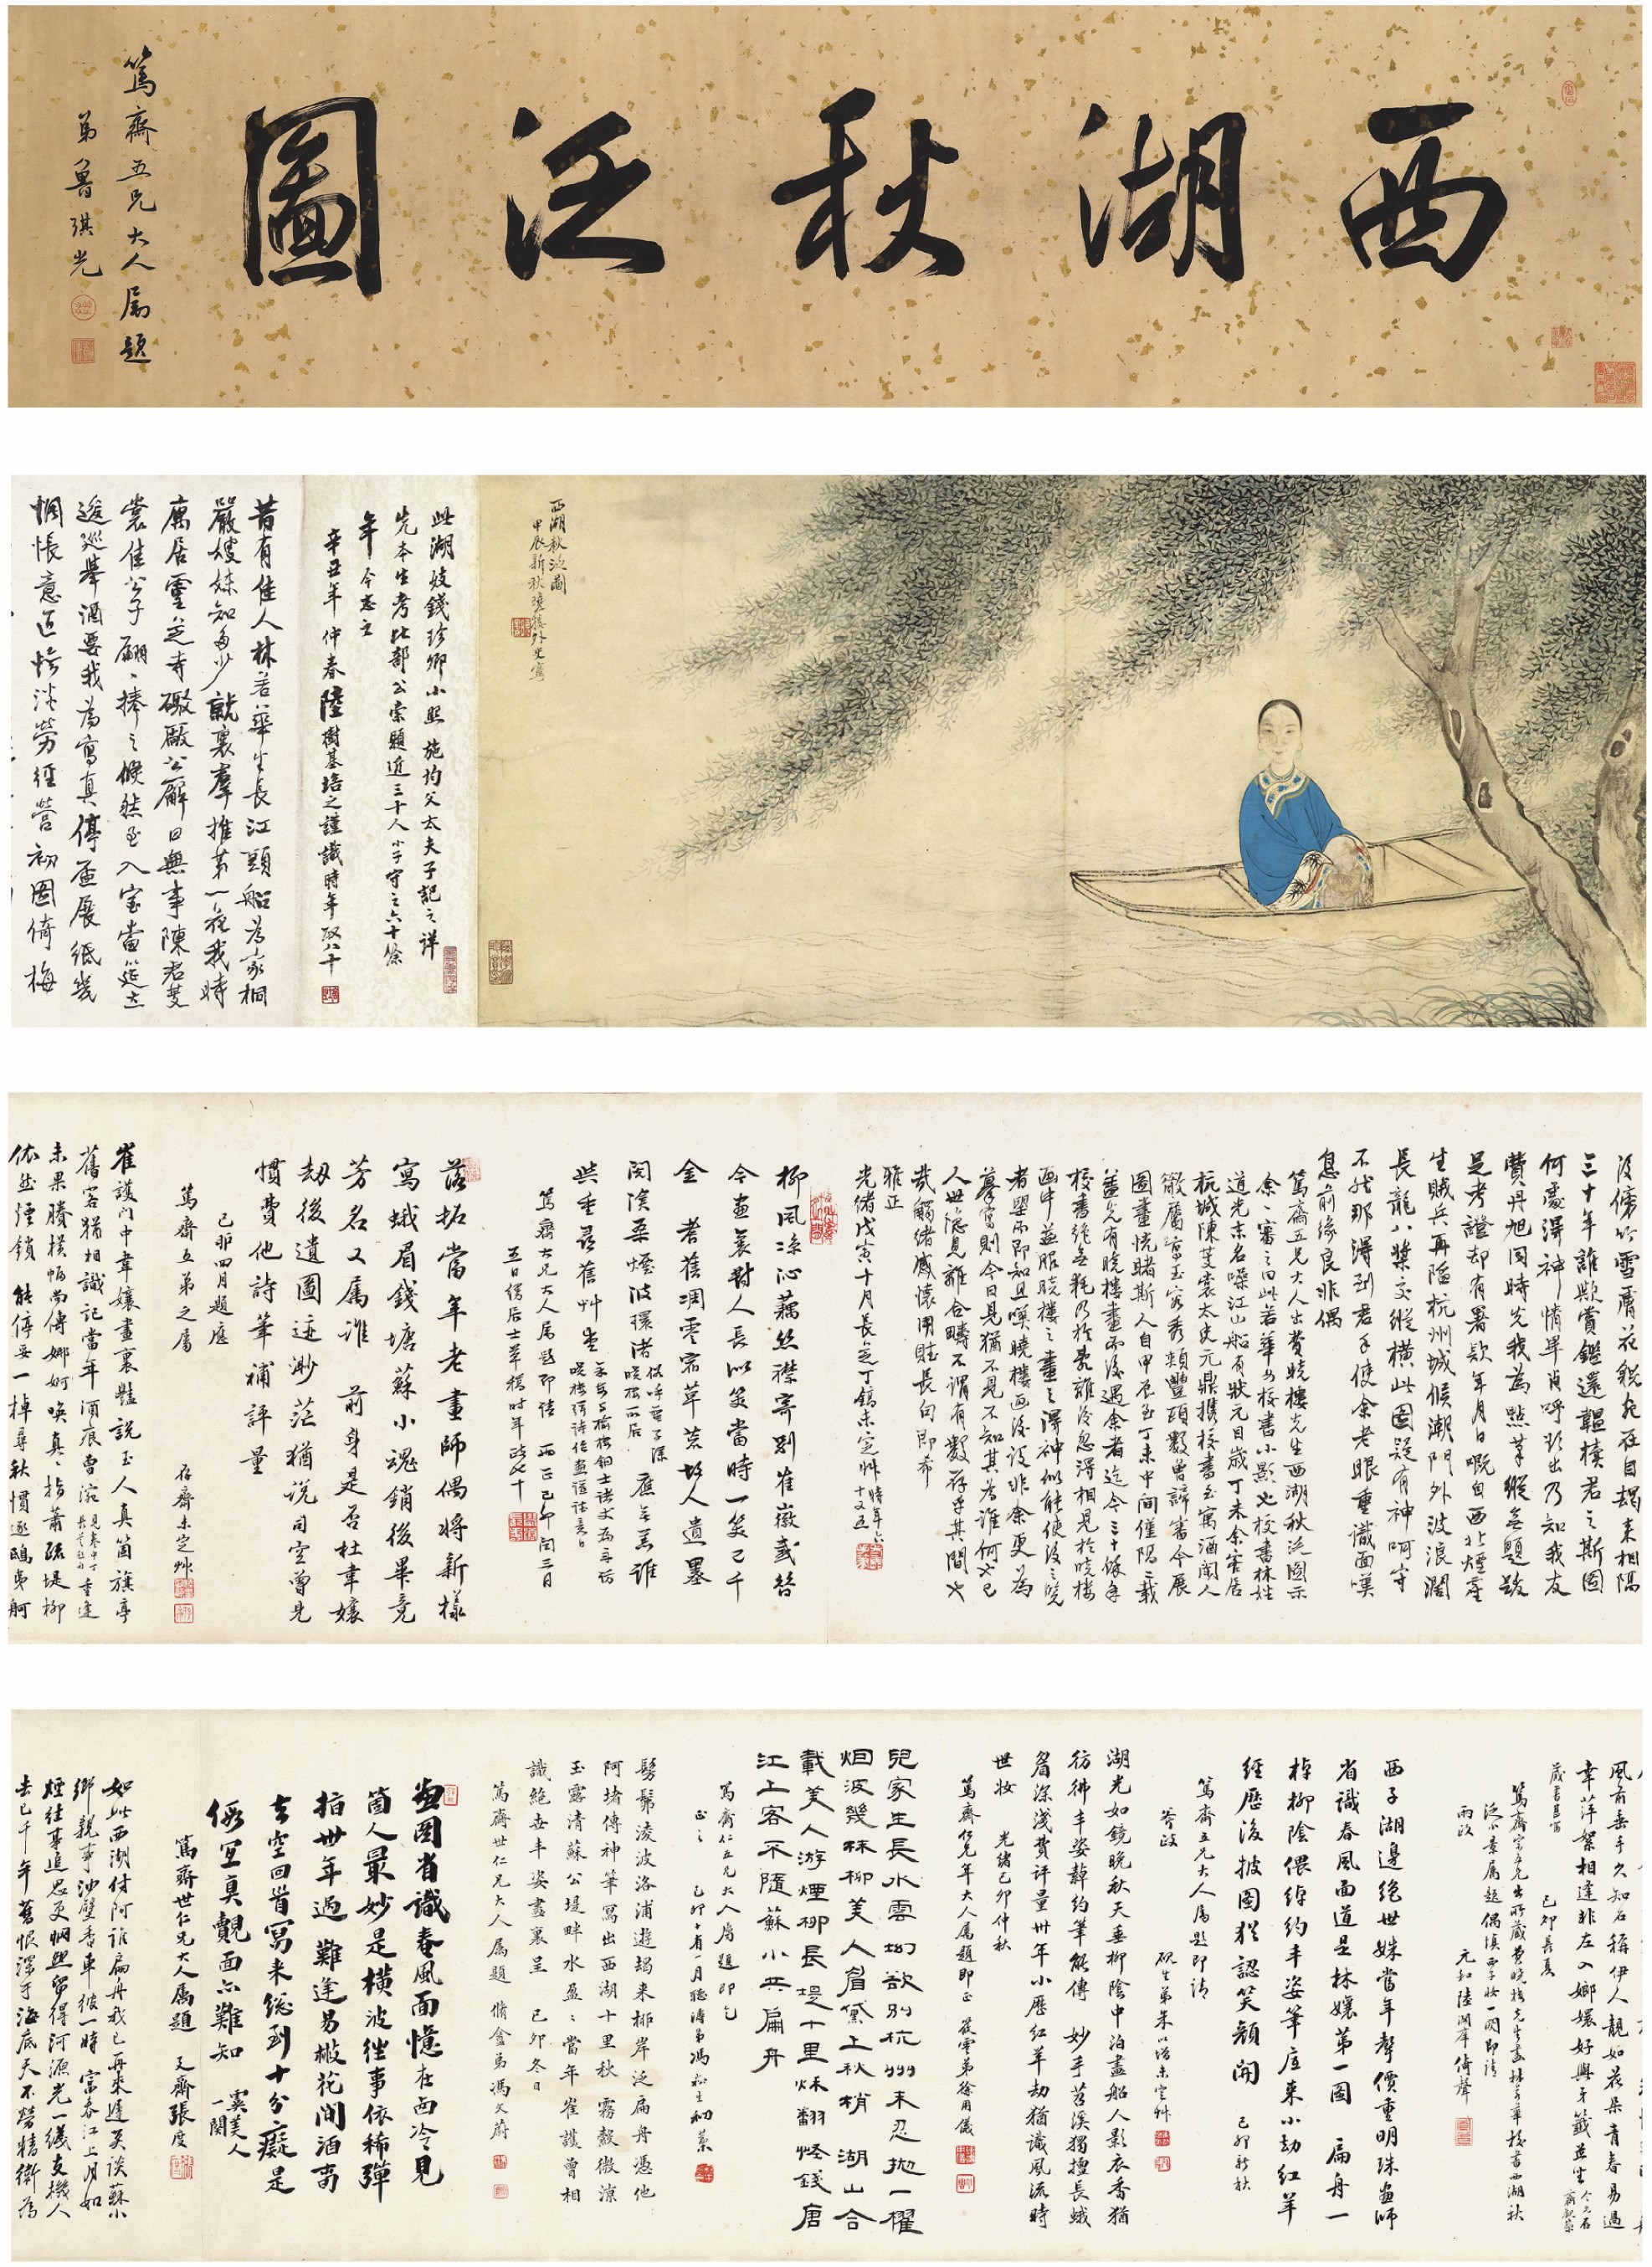 西湖秋泛圖
篤齋五兄大人屬題
弟魯琪光
西湖秋泛圖
甲辰新秋曉樓外史寫
此湖妓錢珍卿小照施均父太夫子記之詳
先本生考比部公索題近三十人小子守之六十餘
年今志之
辛丑年仲春陸樹基培之謹識時年政八十
昔有佳人林若華生長江頭船為家桐
嚴嫂妹知多少就裏羣推第一花我時
寓居靈芝寺礮厰公廨日無事陳君芰
裳佳公子翩翩捧之倐然至入室當筵立
逡巡舉酒要我為寫真停盃展紙幾
惆悵意匠慘淡勞經營初圖倚梅
後傍竹雪膚花貌宛在目朅來相隔
三十年誰歟賞鑑還韞櫝君之斯圖
何處得神情畢肖呼欲出乃知我友
費丹旭同時先我為點筆縱無題跋
足考證却有署欵年月日嘅自西北煙塵
生賊兵再陷杭州城候潮門外波浪濶
長龍八槳交縱橫此圖疑有神呵守
不然那得到君手使余老眼重識面嘆
息前緣良非偶
篤齋五兄大人出費曉樓先生西湖秋泛圖示
余余審之曰此若華女校書小影也校書林姓
道光末名噪江山船有狀元目歲丁未余客居
杭城陳芰裳太史元鼎携校書至寓酒闌人
散屬寫玉容秀頰豐頤數曾諦審今展
圖畫恍睹斯人自甲辰至丁未中間僅隔二載
蓋先有曉樓畫而後遇余者迄今三十餘年
校書絕無耗乃於亂離後忽得相見於曉樓
畫中並服曉樓之畫之得神似能使後之見
者望而即知且嘆曉樓画後設非余更為
摹寫則今日見猶不見不知其為誰何也已
人世隱見離合疇不謂有數存乎其間也
哉觴緒感懷用賦長句即希
雅正
光緒戊寅十月長芝丁鎬未定艸時年六十又五
柳風凉沁藕絲襟寄別崔徽感昝
今画裏對人長似笑當時一笑已千
金 耆舊凋零宿草荒故人遺墨
閱滄桑煙波環渚依呼筆子深曉樓所居應無恙誰
與重尋舊艸堂
篤齋大兄大人属題即請 正己卯閏三月
五日儒居士草稿時年政七十
落拓當年老畫師偶將新樣
寫蛾眉錢塘蘇小魂銷後畢竟
芳名又属誰 前身是否杜韋孃
刼後遺圖迹渺茫猶說司空曾見
慣費他詩筆補評量
己卯四月題應
篤齋五弟之屬 存齋未定艸
崔護門中韋孃畫裏豔說玉人真箇旗亭
舊客猶相識記當年酒痕曾涴見卷中丁長芝題重逢
未果賸橫幅尚傳娜婀喚真真指蕭疏堤柳
依然煙鎖 能停妥一棹尋秋慣逐鷗夷舸
風前垂手久知名稱伊人靚如花朵青春易過
幸萍絮相逢非左口娜孃好與牙籤並坐
歲書其齋 己卯長夏
篤齋宗五兄出所藏費曉樓先生畫林若華校書西湖秋
泛小景属題偶填西子妝一闋即請
兩政 元和陸潤庠倚聲
西子湖邊絕世姝當年聲價重明珠畫師
省識春風面道是林孃第一圖 扁舟一
棹柳陰偎綽約丰姿筆底來小劫紅羊
經歷後披圖猶認笑顏開
篤齋五兄大人属題即請 己卯新秋
荃政 硯生弟朱以增未定艸
湖光如鏡晚秋天垂柳陰中泊畫船人影衣香猶
彷彿丰姿綽約筆能傳 妙手苕溪獨擅長蛾
眉深淺費評量卅年小歷紅羊劫猶識風流時
世妝 光緒己卯仲秋
篤齋仁兄年大人属題即正 筱雲弟徐用儀
兒家生長水雲㘭欲別杭州未忍抛一櫂
烟波幾株柳美人眉黛上秋梢 湖山合
載美人游煙柳長堤十里秋翻怪錢唐
江上客不隨蘇小共扁舟
篤齋仁五兄大人屬題即乞
正之 己卯十有一月聽濤弟馮松生初藁
髣髴淩波洛浦遊朅來椰岸泛扁舟憑他
阿堵傳神筆寫出西湖十里秋 霧縠微涼
玉露清蘇公堤畔水盈盈當年崔護曾相
識絕世丰姿畫裏呈 己卯冬日
篤齋世仁兄大人属題 脩盦弟馮文蔚
畫圖省識春風面憶在西泠見
箇人最妙是橫波往事依稀彈
指卅年過 難逢易散花間酒禹
去空回首寫來總到十分癡是
假冝真覿面亦難知 虞美人一闋
篤齋世仁兄大人属題 又齋張度
如此西湖付阿誰扁舟我已再來遲笑談蘇小
鄉親事油壁香車彼一時 富春江上月如
煙往事追思更惘然留得河源光一綫支機人
去已千年 舊恨深于海底天不勞精衛為